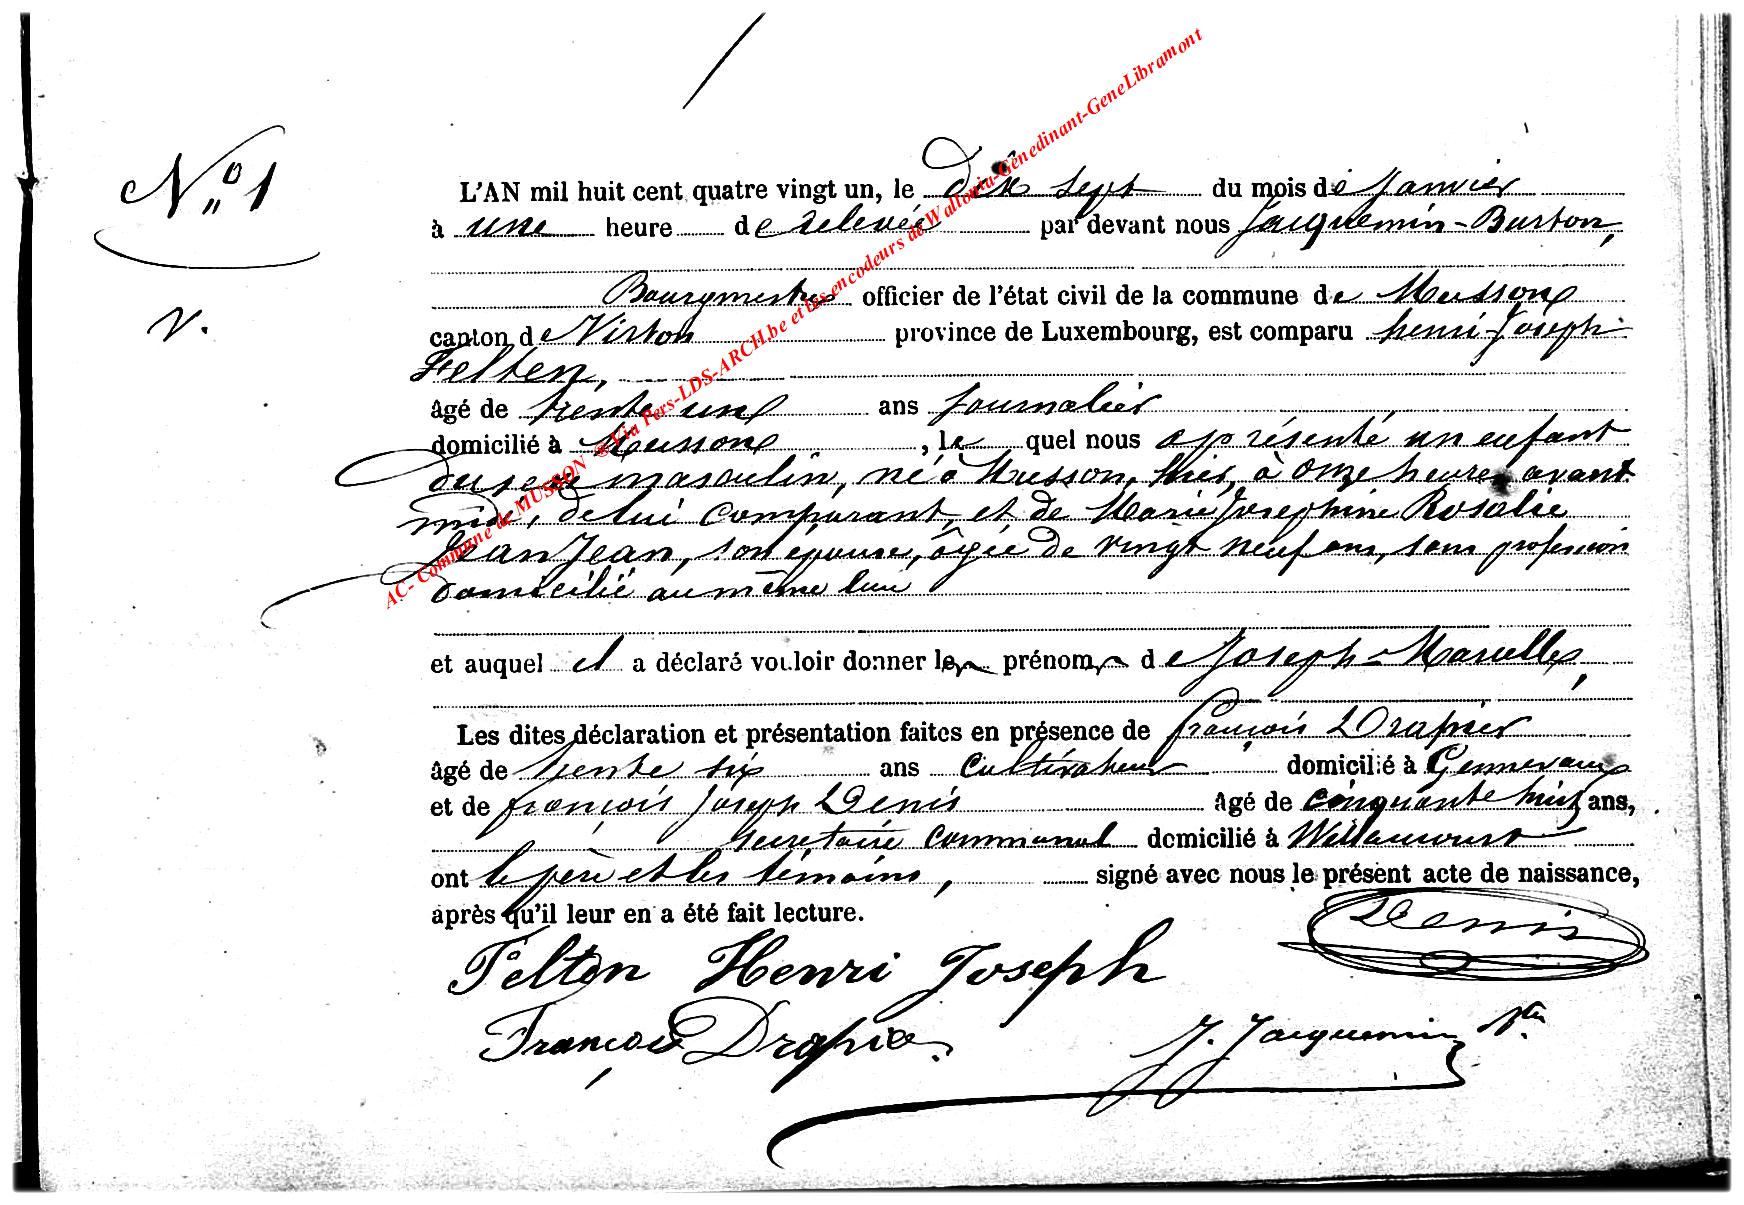 N° 1
L'AN mil huit cent quatre vingt un, le dix sept du mois de Janvier
à une heure de relevée par devant nous Jacquemin-Burton,
Bourgmestre officier de l'état civil de la commune de Musson
canton de Virton province de Luxembourg, est comparu henri-Joseph
Felten,
âgé de trente un ans journalier
domicilié à Musson, le quel nous a présenté un enfant
du sexe masculin, né à Musson, hier, à onze heures avant
midi, de lui comparant, et de Marie Joséphine Rosalie
JeanJean, son épouse, âgée de vingt neuf ans, sans profession
domicilié au même lieu
et auquel il a déclaré vouloir donner les prénoms de Joseph-Marcelle,
Les dites déclaration et présentation faites en présence de françois Drapier
âgé de trente six ans cultivateur domicilié à Gennevaux
et de françois Joseph Denis âgé de cinquante huit ans,
secrétaire communal domicilié à Willancourt
ont le père et les témoins, signé avec nous le présent acte de naissance,
après qu'il leur en a été fait lecture.
Denis
Felten Henri Joseph
François Drapier
J. Jacquemin Btn
AC- Commune de MUSSON ®Via Pers-LDS-ARCH.be et les encodeurs de Wallonia-Genedinant-GeneLibramont